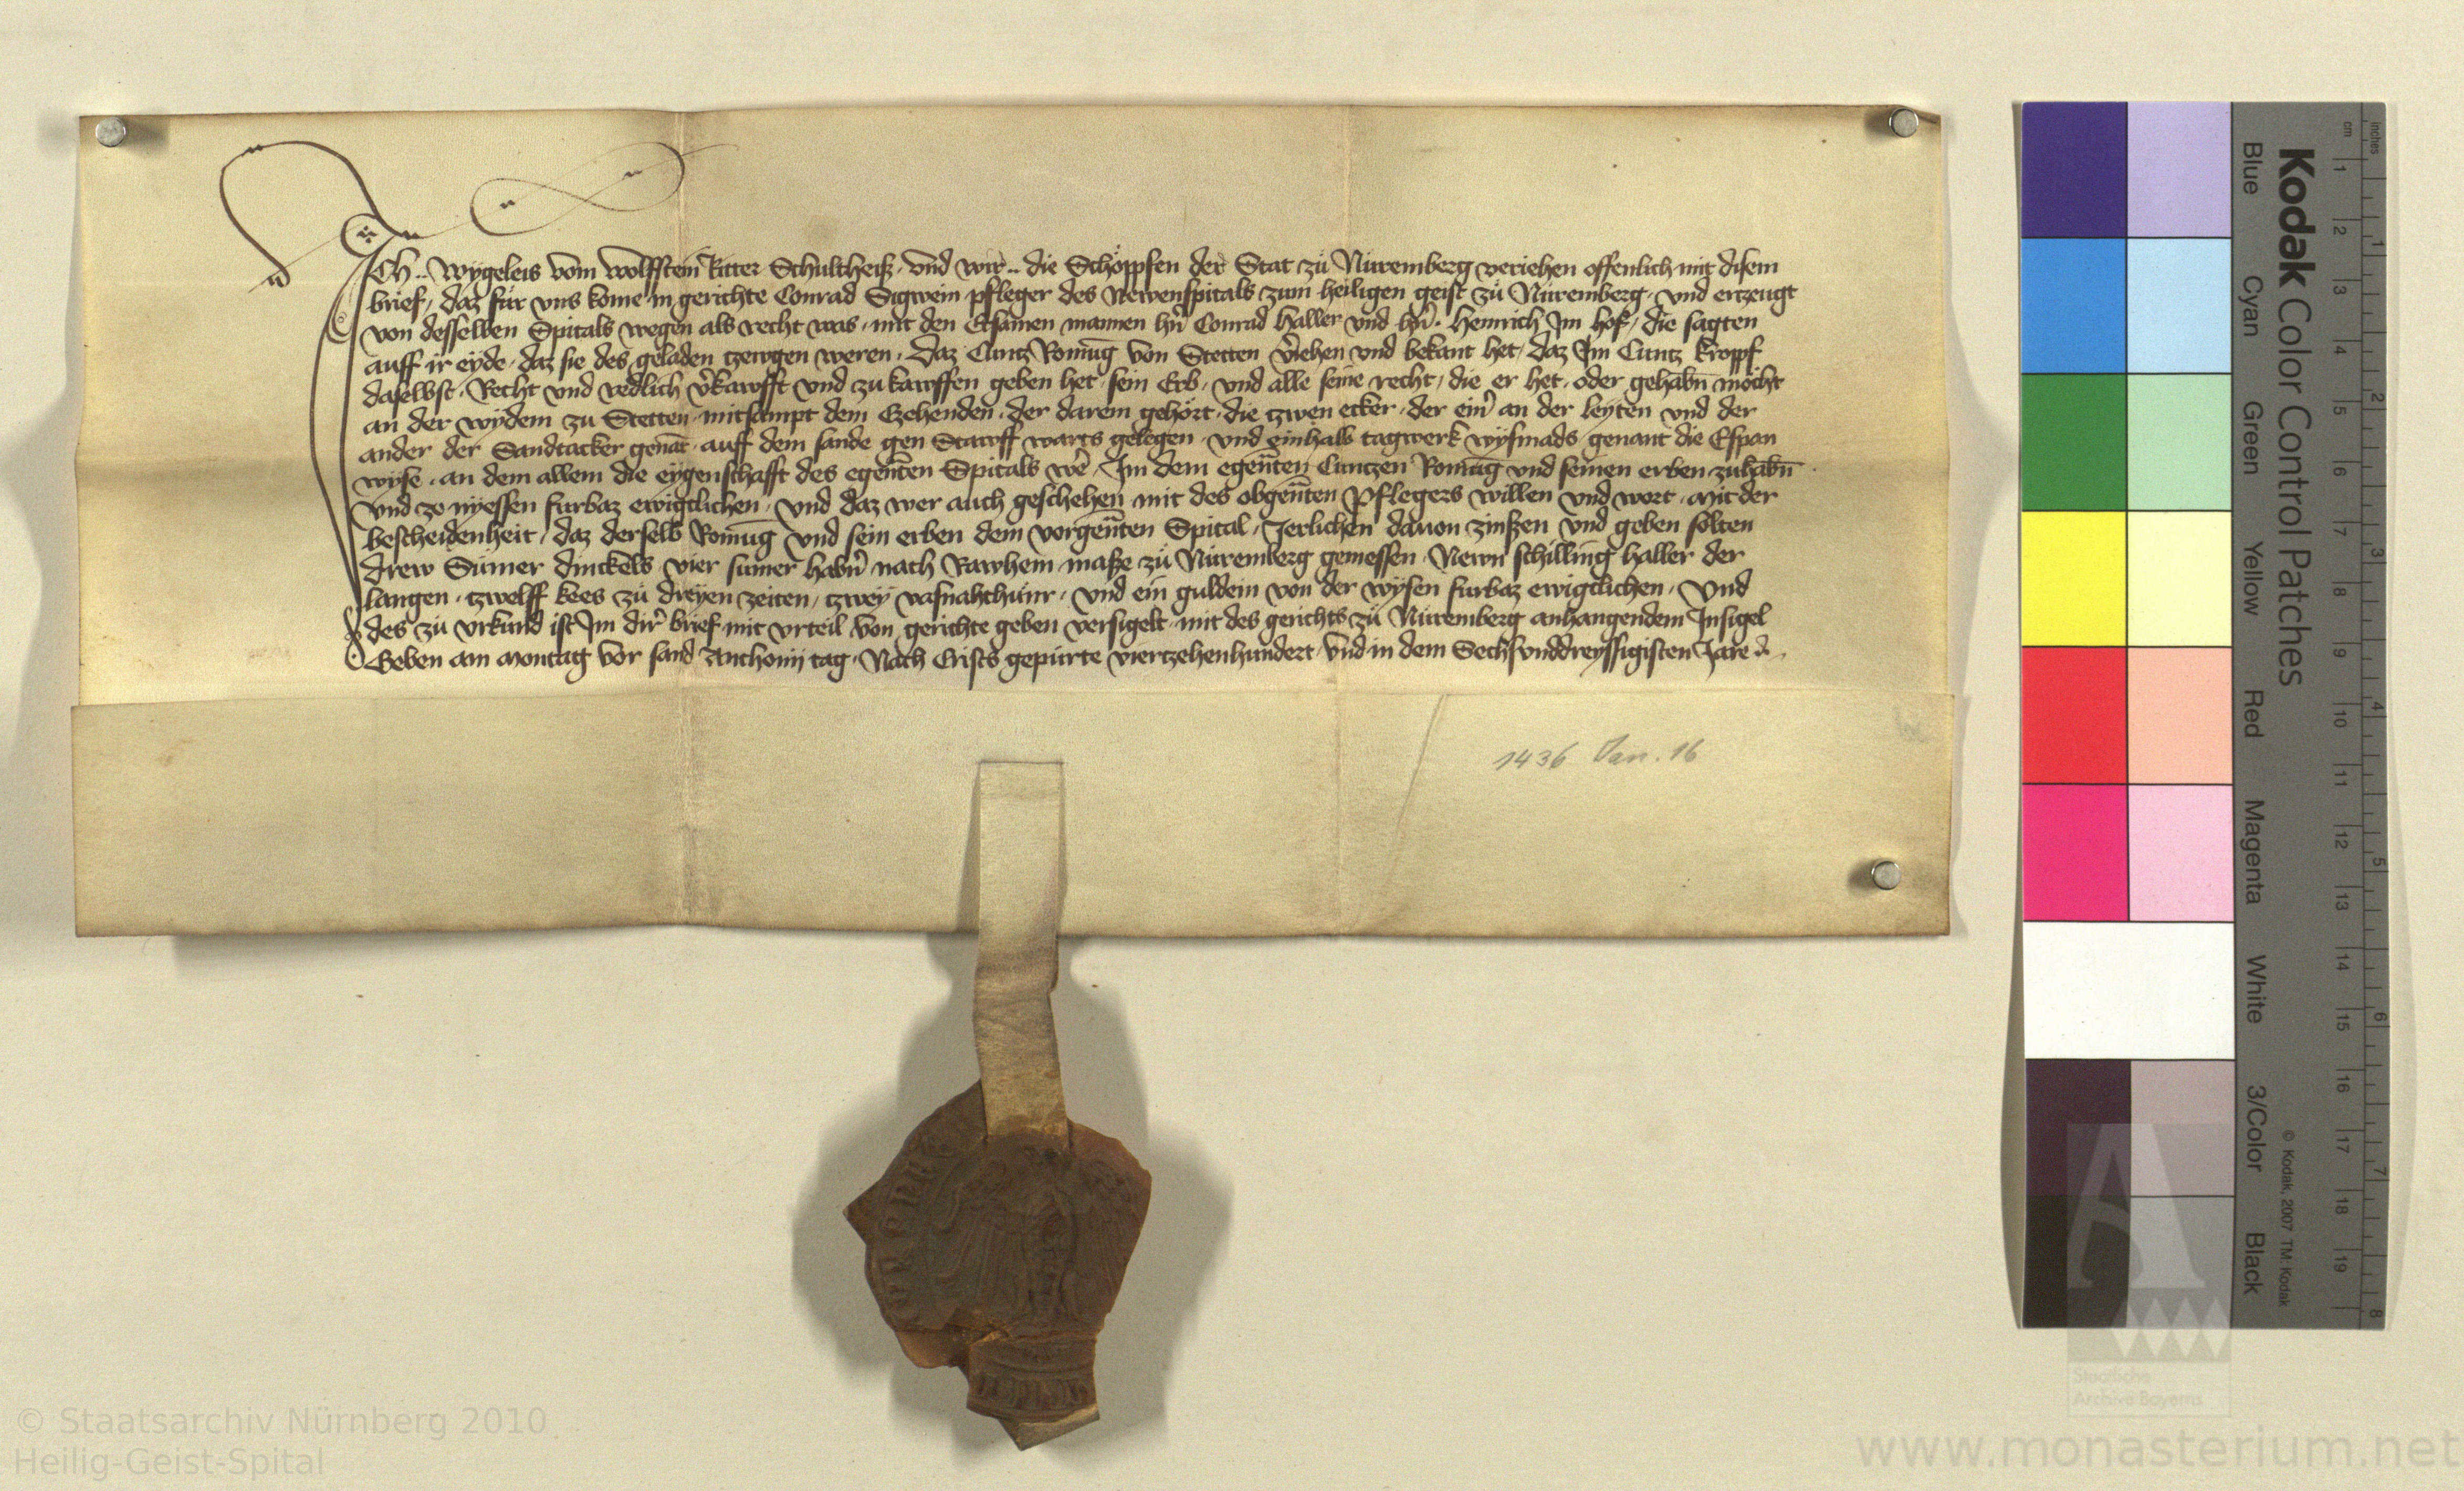 ICh .. Wygeleis vom Wolffstein Ritter Schultheiß, vnd wir .. die Schöppfen der Stat zů Nüremberg veriehen offenlich mit disem
brief, daz für vns kome in gerichte Conrad Sigwein pfleger des Newenspitals zum heiligen geist zů Nüremberg, vnd ertzeugt
von desselben Spitals wegen als recht was, mit den Ersamen mannen hn̄ Conrad Haller vnd hn̄ Heinrich Im hof, die sagten
auff ir eyde, daz sie des geladen tzewgen weren, Daz Cuntz Romūg von Stetten v̄iehen vnd bekant het, daz Im Cuntz Kropf
daselbst, Recht vnd redlich v̄kawfft vnd zu kawffen geben het, sein Erb, vnd alle seine recht, die er het, oder gehabn̄ möcht
an der wydem zu Stetten, mitsampt dem Czehenden, der darein gehört, die tzwen ecker, der ein̄ an der leyten vnd der
ander der Sandtacker genāt, auff dem sande gen Stawff warts gelegen, vnd einhalb tagwerk wysmads genant die Espan
wyse, an dem allem die eygenschafft des egen̄ten Spitals wē, Im dem egen̄ten Cuntzen Romūg vnd seinen erben zuhabn̄
vnd zo nyessen furbaz ewigclichen, vnd daz wer auch geschehen mit des obgen̄ten Pflegers willen vnd wort, Mit der
bescheidenheit, daz derselb Romūg vnd sein erben dem vorgen̄ten Spital, Jerlichen dauon zinßen vnd geben solten
drew Sümer dinckels, vier sümer habn̄ nach Rawhem maße zů Nüremberg gemessen, Newn schilling haller der
langen, tzwelff kees zů dreyen zeiten, tzwey vasnahthünr, vnd ein guldein von der wysen furbaz ewigclichen, Vnd
des zů vrkund ist Im dir̄ brief mit vrteil von gerichte geben versigelt mit des gerichts zů Nüremberg anhangendem Insigel
Geben am Montag vor sand Anthonij tag, Nach Crists gepürte viertzehenhundert vnd in dem Sechsvnddreyssigisten Jare
1436 Jan. 16
Kodak Color Control Patches
Blue Cyan Green Yellow Red Magenta White 3/Color Black
cm 1 2 3 4 5 6 7 8 9 10 11 12 13 14 15 16 17 18 19
inches 1 2 3 4 5 6 7 8
© Kodak, 2007 TM: Kodak
Staatliche
Archive Bayerns
© Staatsarchiv Nürnberg 2010
Heilig-Geist-Spital
www.monasterium.net